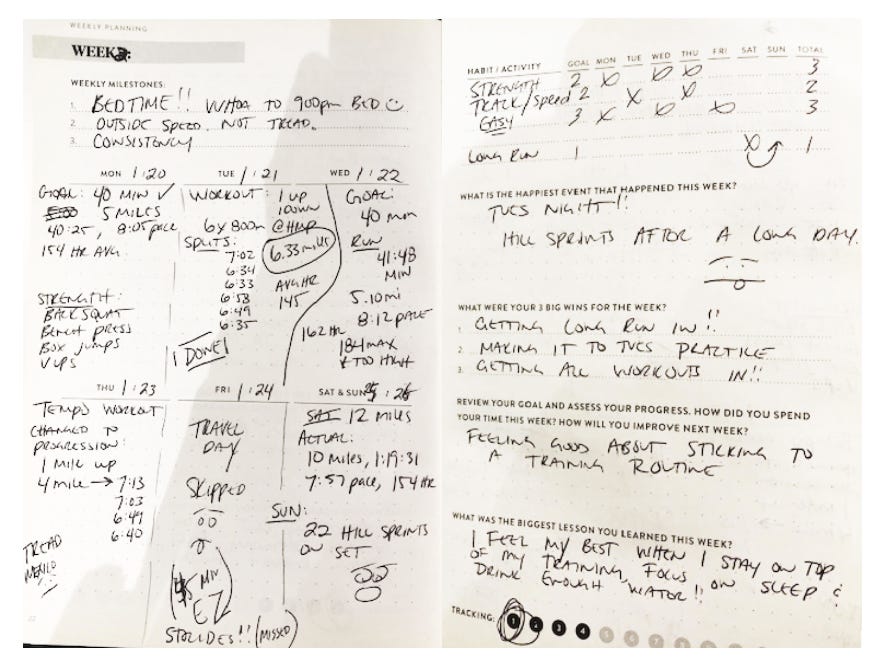 WEEKLY PLANNING
WEEK
WEEKLY MILESTONES:
1. BEDTIME!! WHOA TO 900pm BED
2. OUTSIDE SPEED. NOT TREAD.
3. CONSISTENCY
MON 1/20
GOAL: 40 MIN ✓
5 MILES
40:25, 8:05 pace
154 HR AVG.
STRENGTH:
BACK SQUAT
Bench press
Box jumps
V ups
TUE 1/21
WORKOUT: 1 UP
1 DOWN
6x 800m @HMP
SPLITS:
6.33 miles
7:02
6:34
6:33
6:53
6:49
6:35
AVG HR
145
DONE
WED 1/22
GOAL:
40 min
RUN
41:48
MIN
5.10 mi
8:12 pace
162 HR
184 MAX
* TOO HIGH
THU 1/23
TEMPO WORKOUT
CHANGED TO
PROGRESSION:
1 MILE UP
4 mile → 7:13
7:03
6:49
6:40
TREAD
FRI 1/24
TRAVEL
DAY
SKIPPED
MIN
EZ
STRIDES!! (MISSED)
SAT & SUN 25/26
SAT 12 MILES
ACTUAL:
10 miles, 1:19:31
7:57 pace, 154 HR
SUN:
22 HILL SPRINTS
ON SET
22
HABIT / ACTIVITY GOAL MON TUE WED THU FRI SAT SUN TOTAL
STRENGTH 2 X X X 3
TRACK/Speed 2 X X 2
EASY 3 X X X 3
LONG RUN 1 X 1
WHAT IS THE HAPPIEST EVENT THAT HAPPENED THIS WEEK?
TUES NIGHT!!
HILL SPRINTS AFTER A LONG DAY.
WHAT WERE YOUR 3 BIG WINS FOR THE WEEK?
1. GETTING LONG RUN IN!!
2. MAKING IT TO TUES PRACTICE
3. GETTING ALL WORKOUTS IN!!
REVIEW YOUR GOAL AND ASSESS YOUR PROGRESS. HOW DID YOU SPEND
YOUR TIME THIS WEEK? HOW WILL YOU IMPROVE NEXT WEEK?
FEELING GOOD ABOUT STICKING TO
A TRAINING ROUTINE
WHAT WAS THE BIGGEST LESSON YOU LEARNED THIS WEEK?
I FEEL MY BEST WHEN I STAY ON TOP
OF MY TRAINING, FOCUS ON SLEEP &
DRINK ENOUGH WATER!!
TRACKING: 1 2 3 4 5 6 7 8